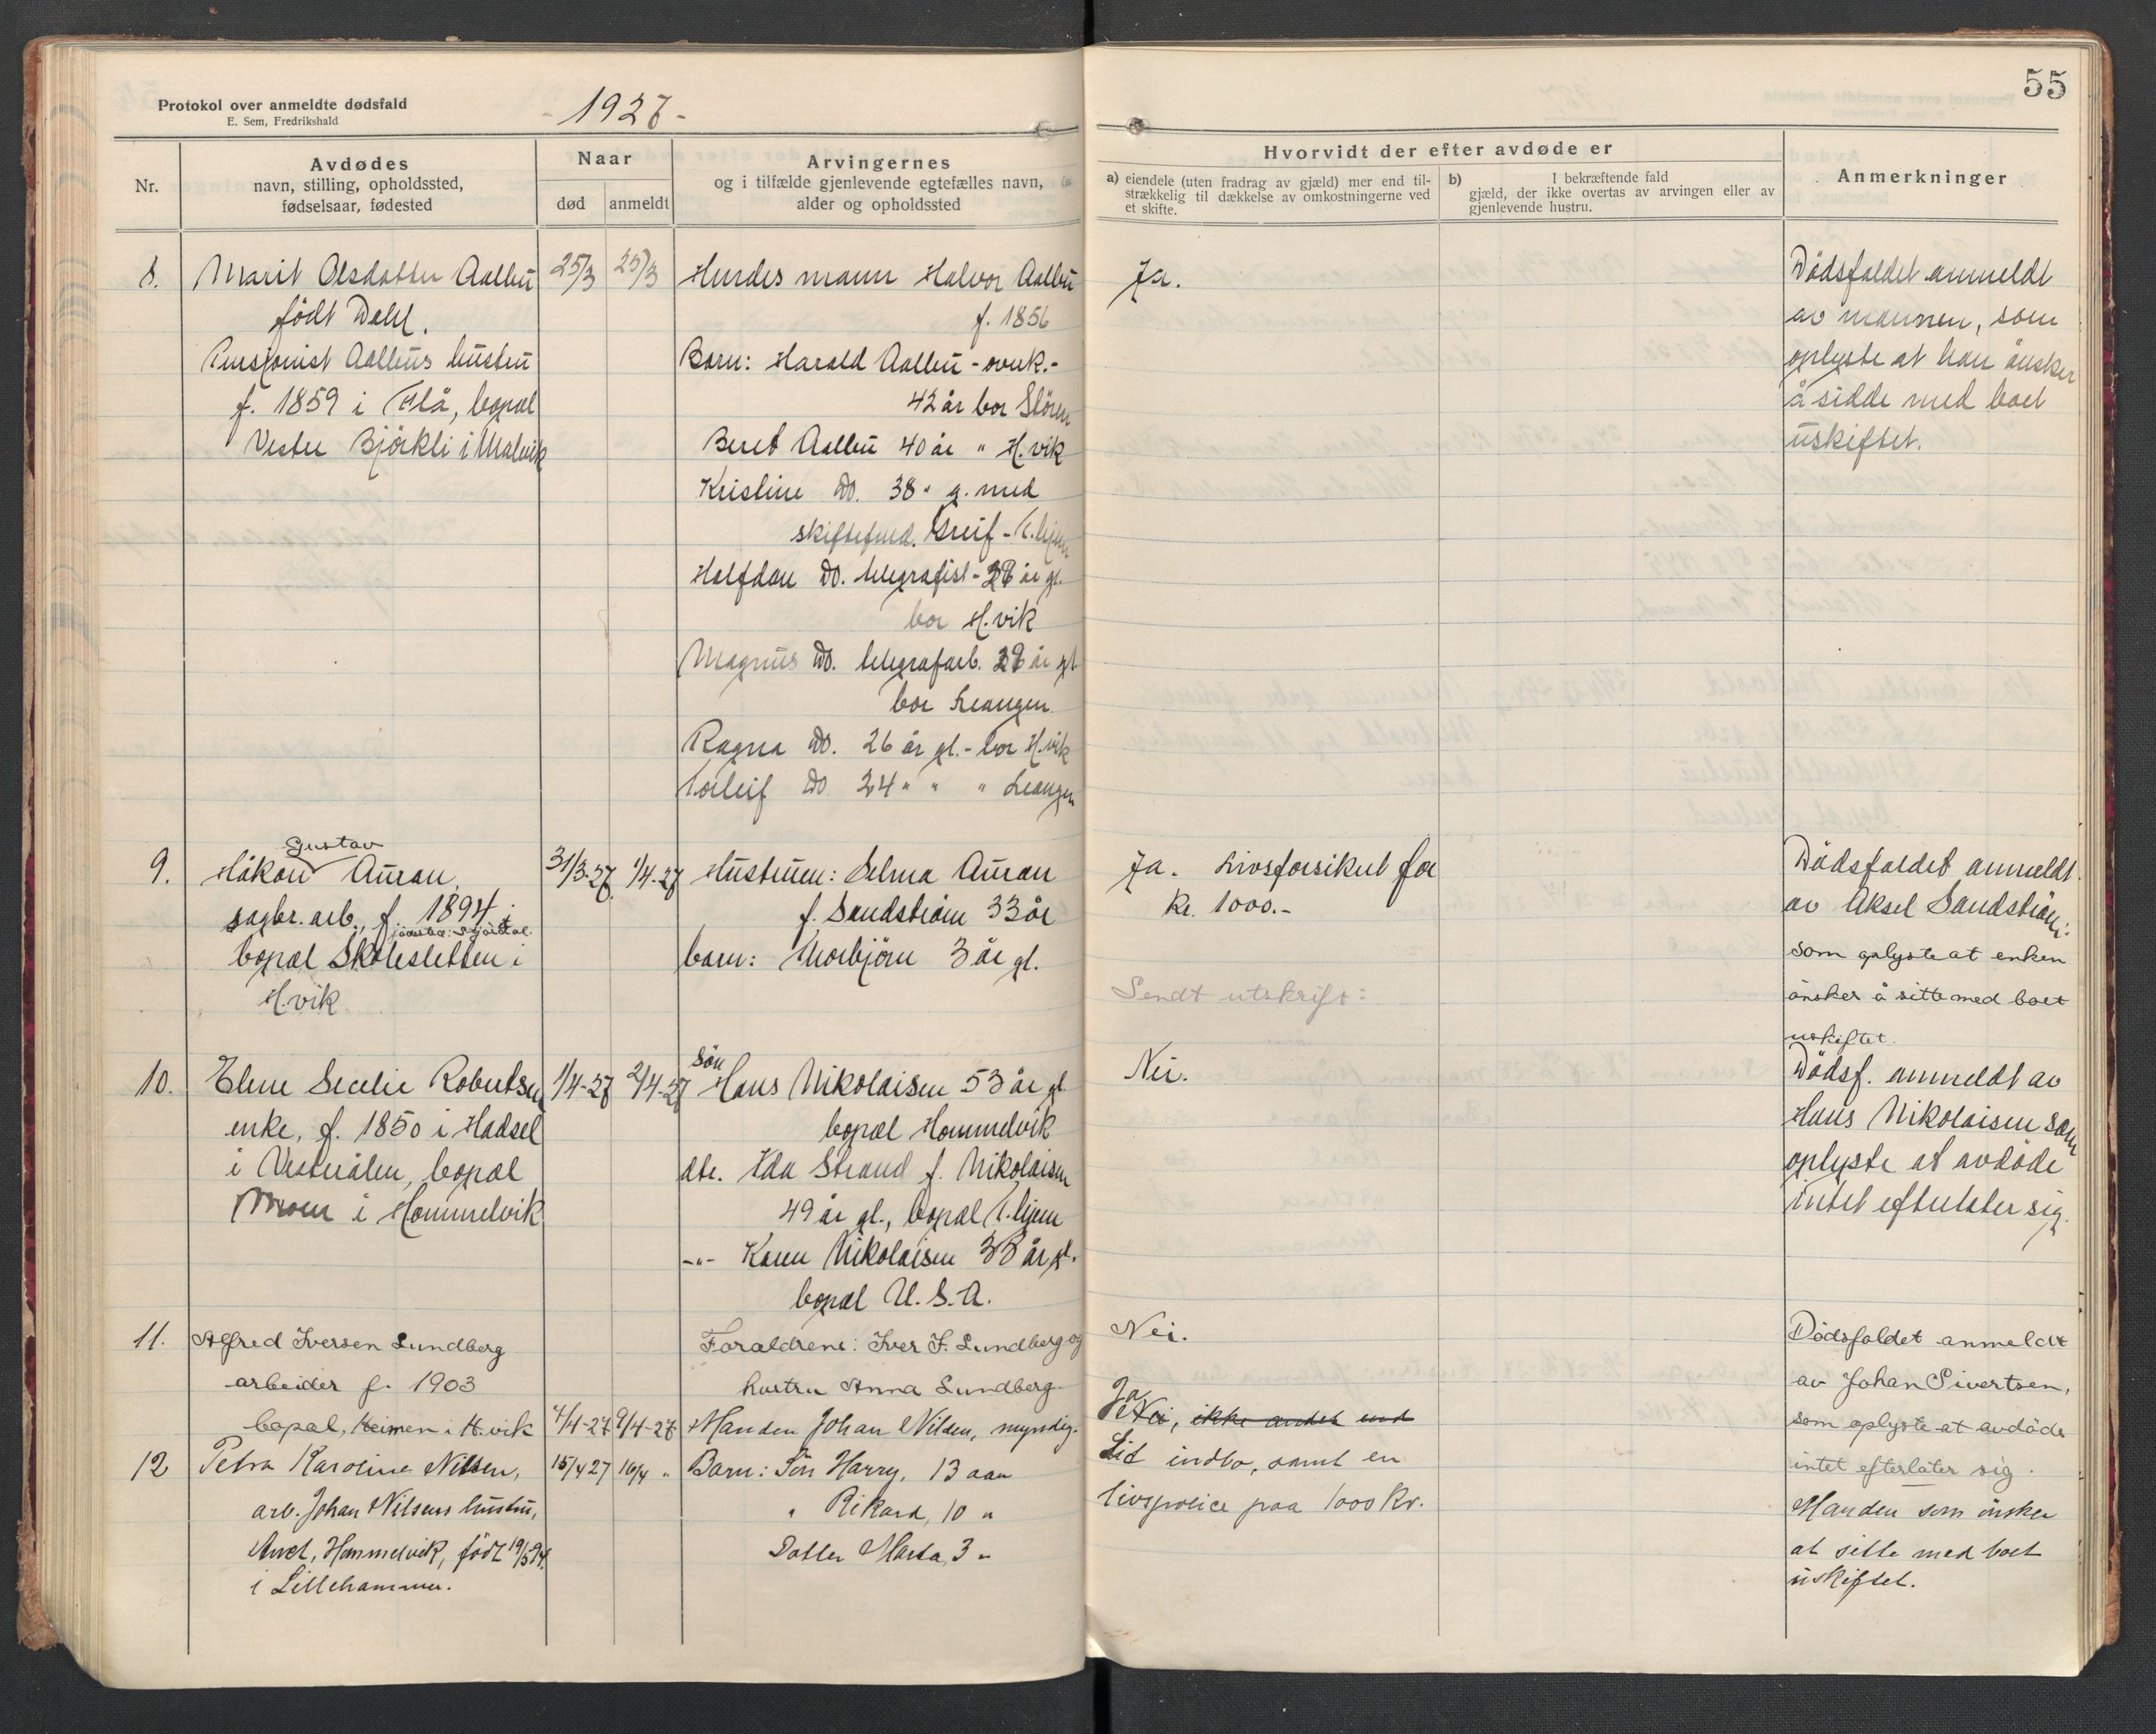 Protokol over anmeldte dødsfald
E. Sem, Fredrikshald
- 1927 -
55
Nr.
Avdødes
navn, stilling, opholdssted,
fødselsaar, fødested
Naar
død
anmeldt
Arvingernes
og i tilfælde gjenlevende egtefælles navn,
alder og opholdssted
Hvorvidt der efter avdøde er
a) eiendele (uten fradrag av gjæld) mer end til-
strækkelig til dækkelse av omkostningerne ved
et skifte.
b) I bekræftende fald
gjæld, der ikke overtas av arvingen eller av
gjenlevende hustru.
Anmerkninger
8.
Marit Olsdatter Aalbu
født Dahl.
Pensjonist Aalbus hustru
f. 1859 i Flå, bopæl
Vestre Björkli i Malvik
25/3
25/3
Hendes mann Halvor Aalbu
f. 1856
Barn: Harald Aalbu - ovnk. -
42 år bor Stören
Beret Aalbu 40 år " H.vik
Kristine Do. 38 " g. med
skiftefuld. Greif - T.hjem
Halfdan Do. telegrafist - 28 år gl.
bor H.vik
Magnus Do. telegrafarb. 28 år gl.
bor Leangen
Ragna Do. 26 år gl. - bor H.vik
Torleif Do. 24 " " " Leangen
Ja.
Dödsfaldet anmeldt
av mannen, som
oplyste at han önsker
å sidde med boet
uskiftet.
9.
Gustav
Håkon Auran,
sagbr. arb., f. 1894.
bopæl Skolesletten i
H.vik
31/3-27
1/4-27
Hustruen: Selma Auran
f. Sandström 33 år
barn: Thorbjörn 3 år gl.
Ja. Livsforsikret for
Kr. 1000.-
Sendt utskrift:
Dödsfaldet anmeldt
av Aksel Sandström:
som oplyste at enken
önsker å sitte med boet
uskiftet.
10.
Elene Secelie Robertsen
enke, f. 1850 i Hadsel
i Vesterålen, bopæl
Moen i Hommelvik
1/4-27
2/4-27
Sön
Hans Nikolaisen 53 år gl
bopæl Hommelvik
dtr. Ida Strand f. Nikolaisen
49 år gl., bopæl T.hjem
-"- Karen Nikolaisen 38 år gl.
bopæl U.S.A.
Nei.
Dödsf. anmeldt av
Hans Nikolaisen som
oplyste at avdöde
intet efterlater sig.
11.
Alfred Iversen Lundberg
arbeider f. 1903
bopæl, Heimen i H.vik
7/4-27
9/4-27
Foraldrene: Iver F. Lundberg og
hustru Anna Lundberg
Nei.
Dödsfaldet anmeldt
av Johan Sivertsen,
som oplyste at avdöde
intet efterlater sig.
12
Petra Karoline Nilsen,
arb. Johan Nilsens hustru,
Hommelvik, födt 19/5 94.
i Lillehammer.
15/4 27
16/4 "
Manden Johan Nilsen, myndig.
Barn: Sön Harry, 13 aar
" Rikard, 10 "
Datter Marta, 3 "
Ja
Nei, ikke andet end
Lit indbo, samt en
livspolice paa 1000 Kr.
Manden som önsker
at sitte med boet
uskiftet.